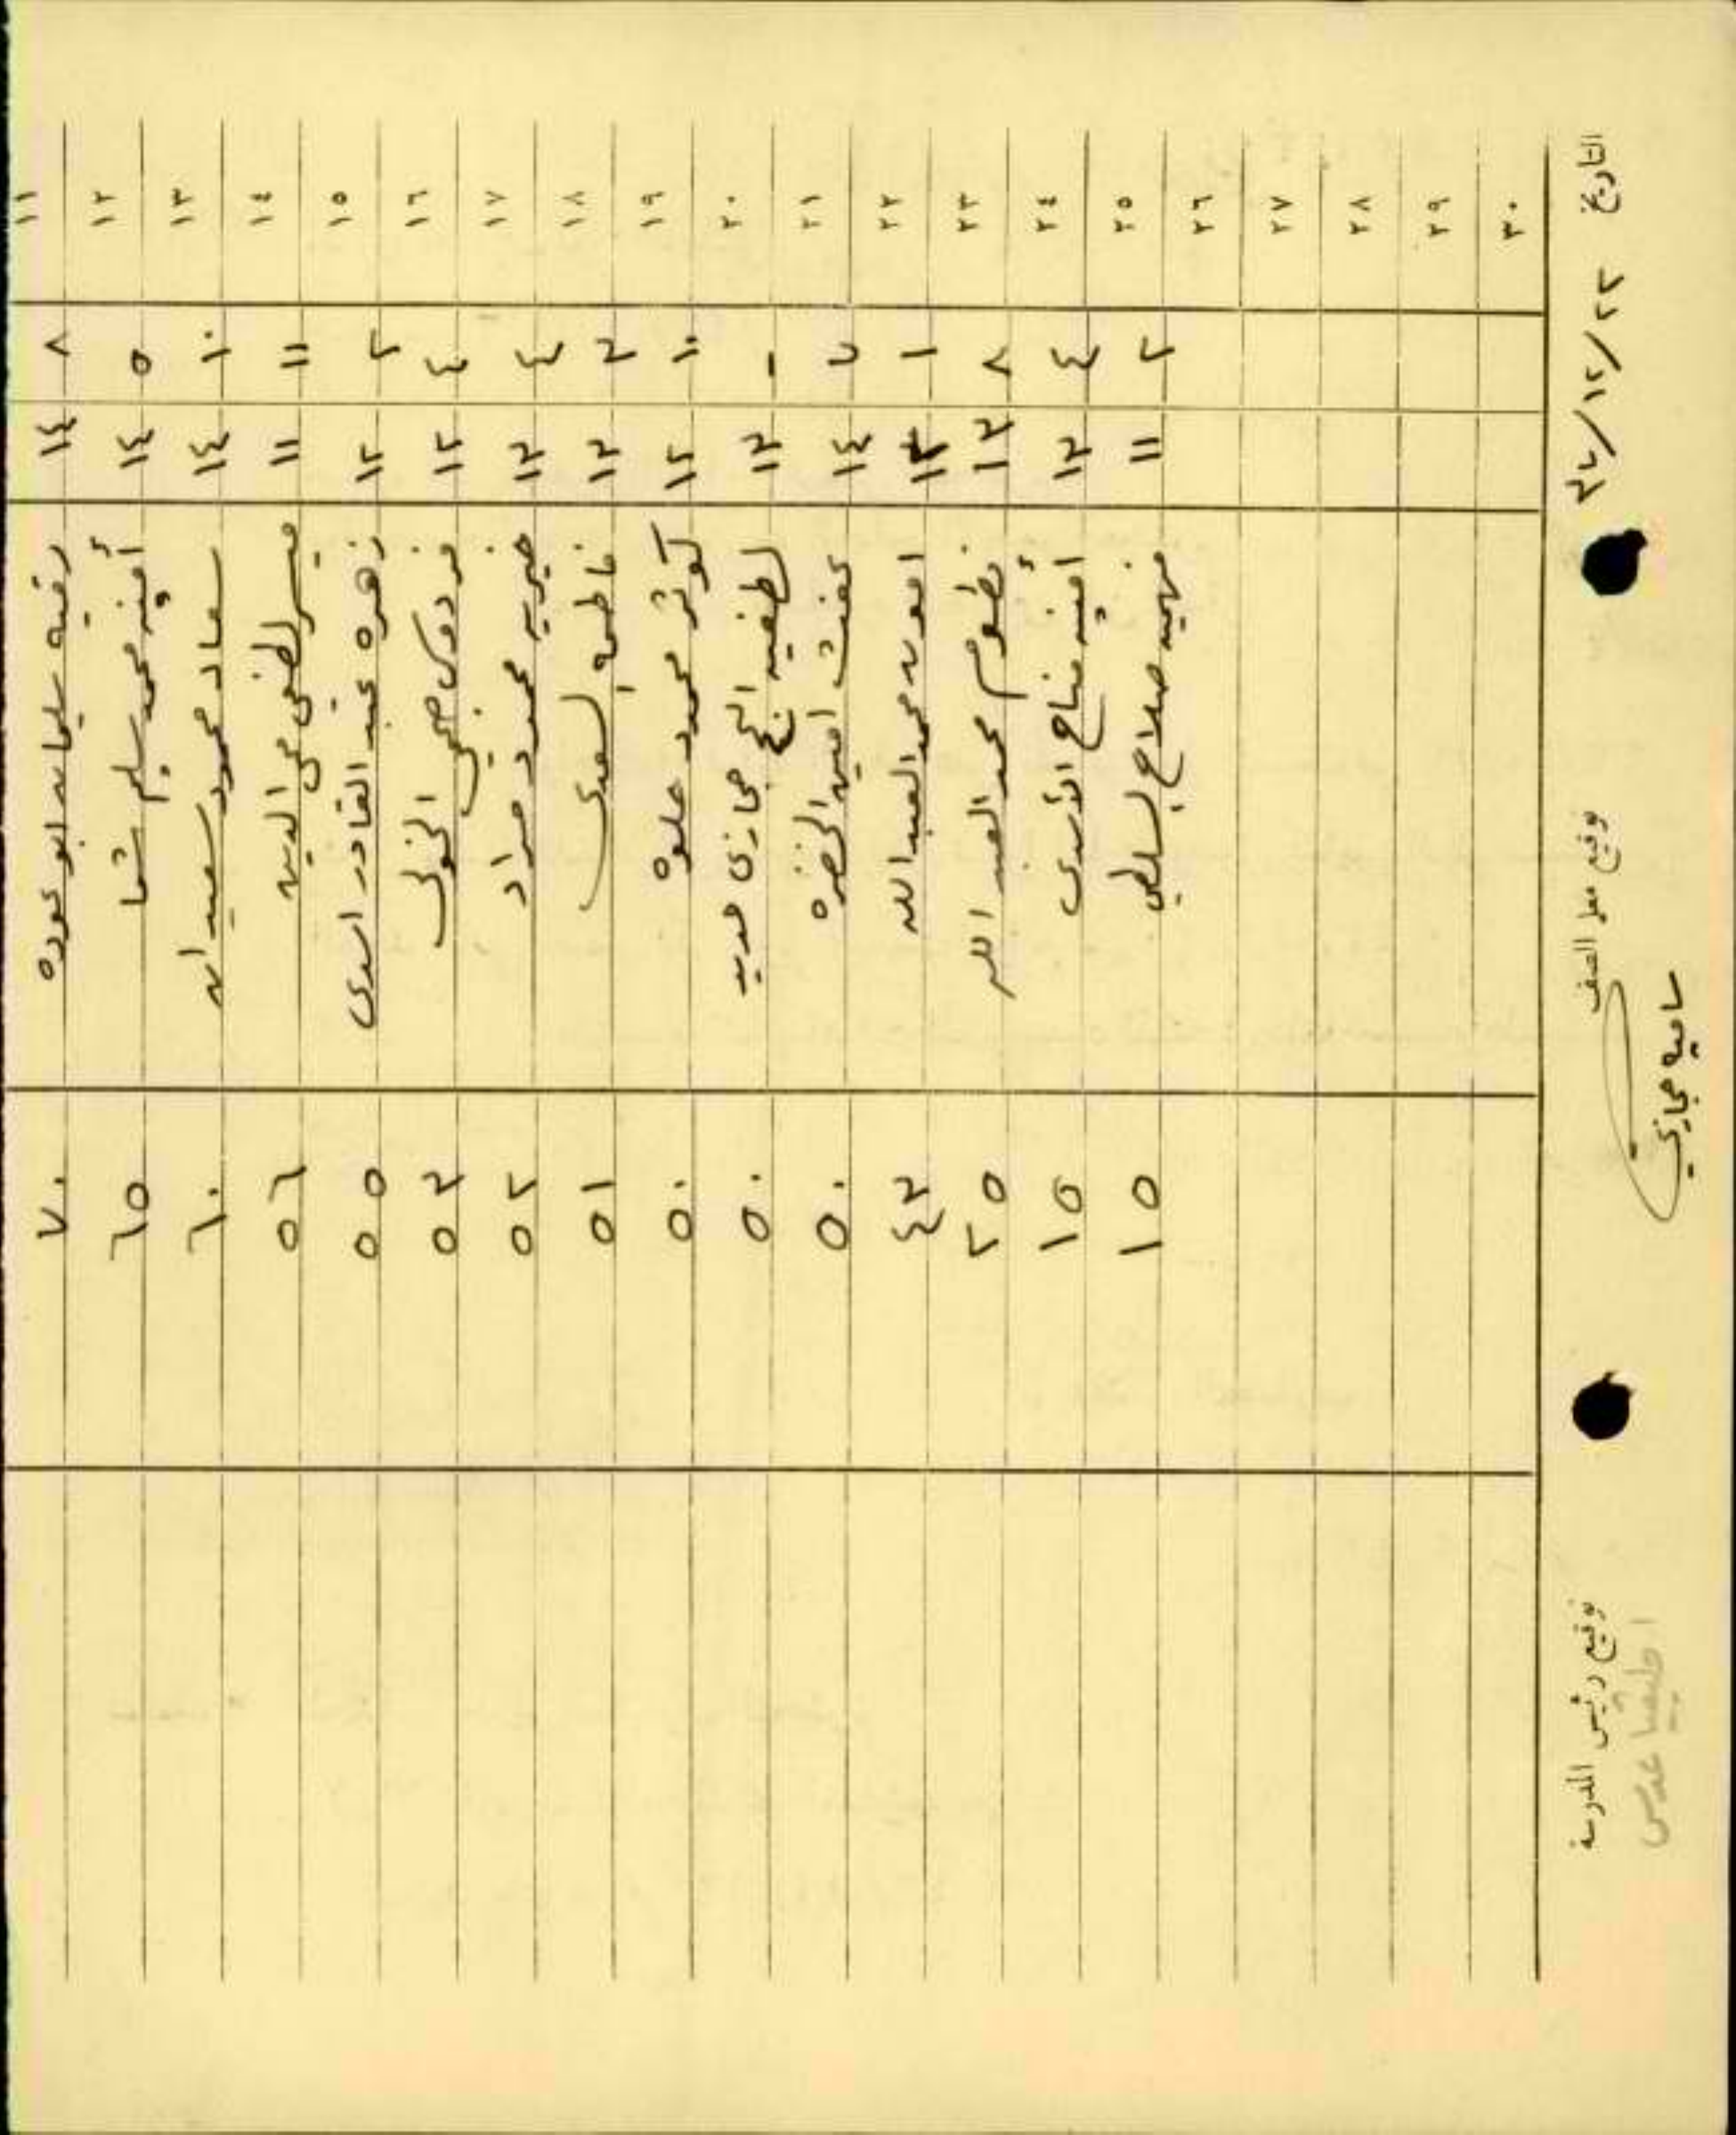 ١١ ٨ ١٤ رقيه سليمان ابو عوده ٧٠
١٢ ٥ ١٤ أمينه محمد سليم شما ٦٥
١٣ ١٠ ١٤ سعاد محمود سعيدان ٦٠
١٤ ١١ ١١ ميسر لطفي محي الدين ٥٦
١٥ ٢ ١٢ زهره عبد القادر اسدى ٥٥
١٦ ٤ ١٢ فردوس صبحي الخولى ٥٣
١٧ ٤ ١٣ خيريه محمود مراد ٥٢
١٨ ٣ ١٣ فاطمه السعدى ٥١
١٩ ١٠ ١٢ كوثر محمود حلوه ٥٠
٢٠ ١٣ لطفيه الحج حجازى حديد ٥٠
٢١ ٧ ١٤ عفت امين الخضره ٥٠
٢٢ ١ ١٣ امون محمد العبد الله ٤٣
٢٣ ٨ ١٣ نظوم محمد العبد الله ٢٥
٢٤ ٤ ١٣ أمينه مفتاح الأسدى ١٥
٢٥ ٢ ١١ فهميه صلاح السلطي ١٥
٢٦
٢٧
٢٨
٢٩
٣٠
التاريخ ٢٢/١٢/ توقيع معلم الصف توقيع رئيس المدرسة
ساميه حجازي عدس